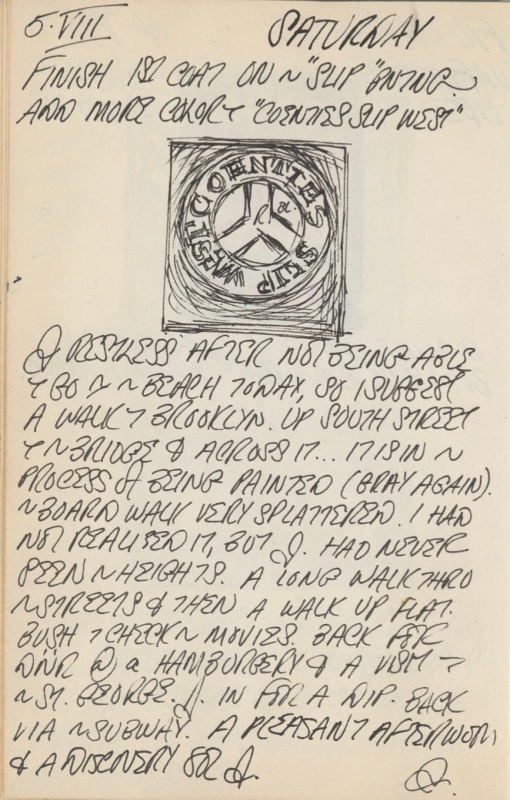 5·VIII SATURDAY
FINISH 1ST COAT ON ~ "SLIP" PNTING.
ADD MORE COLOR T "COENTIES SLIP WEST"
COENTIES SLIP WEST
J RESTLESS AFTER NOT BEING ABLE
T GO T ~ BEACH TODAY, SO I SUGGEST
A WALK T BROOKLYN. UP SOUTH STREET
T ~ BRIDGE & ACROSS IT... IT IS IN ~
PROCESS OF BEING PAINTED (GRAY AGAIN).
~ BOARD WALK VERY SPLATTERED. I HAD
NOT REALISED IT, BUT J. HAD NEVER
SEEN ~ HEIGHTS. A LONG WALK THRO
~ STREETS & THEN A WALK UP FLAT-
BUSH T CHECK ~ MOVIES. BACK FOR
DNR @ a HAMBURGERY & A VISIT T
~ ST. GEORGE. J. IN FOR A DIP. BACK
VIA ~ SUBWAY. A PLEASANT AFTERNOON
& A DISCOVERY FOR J.